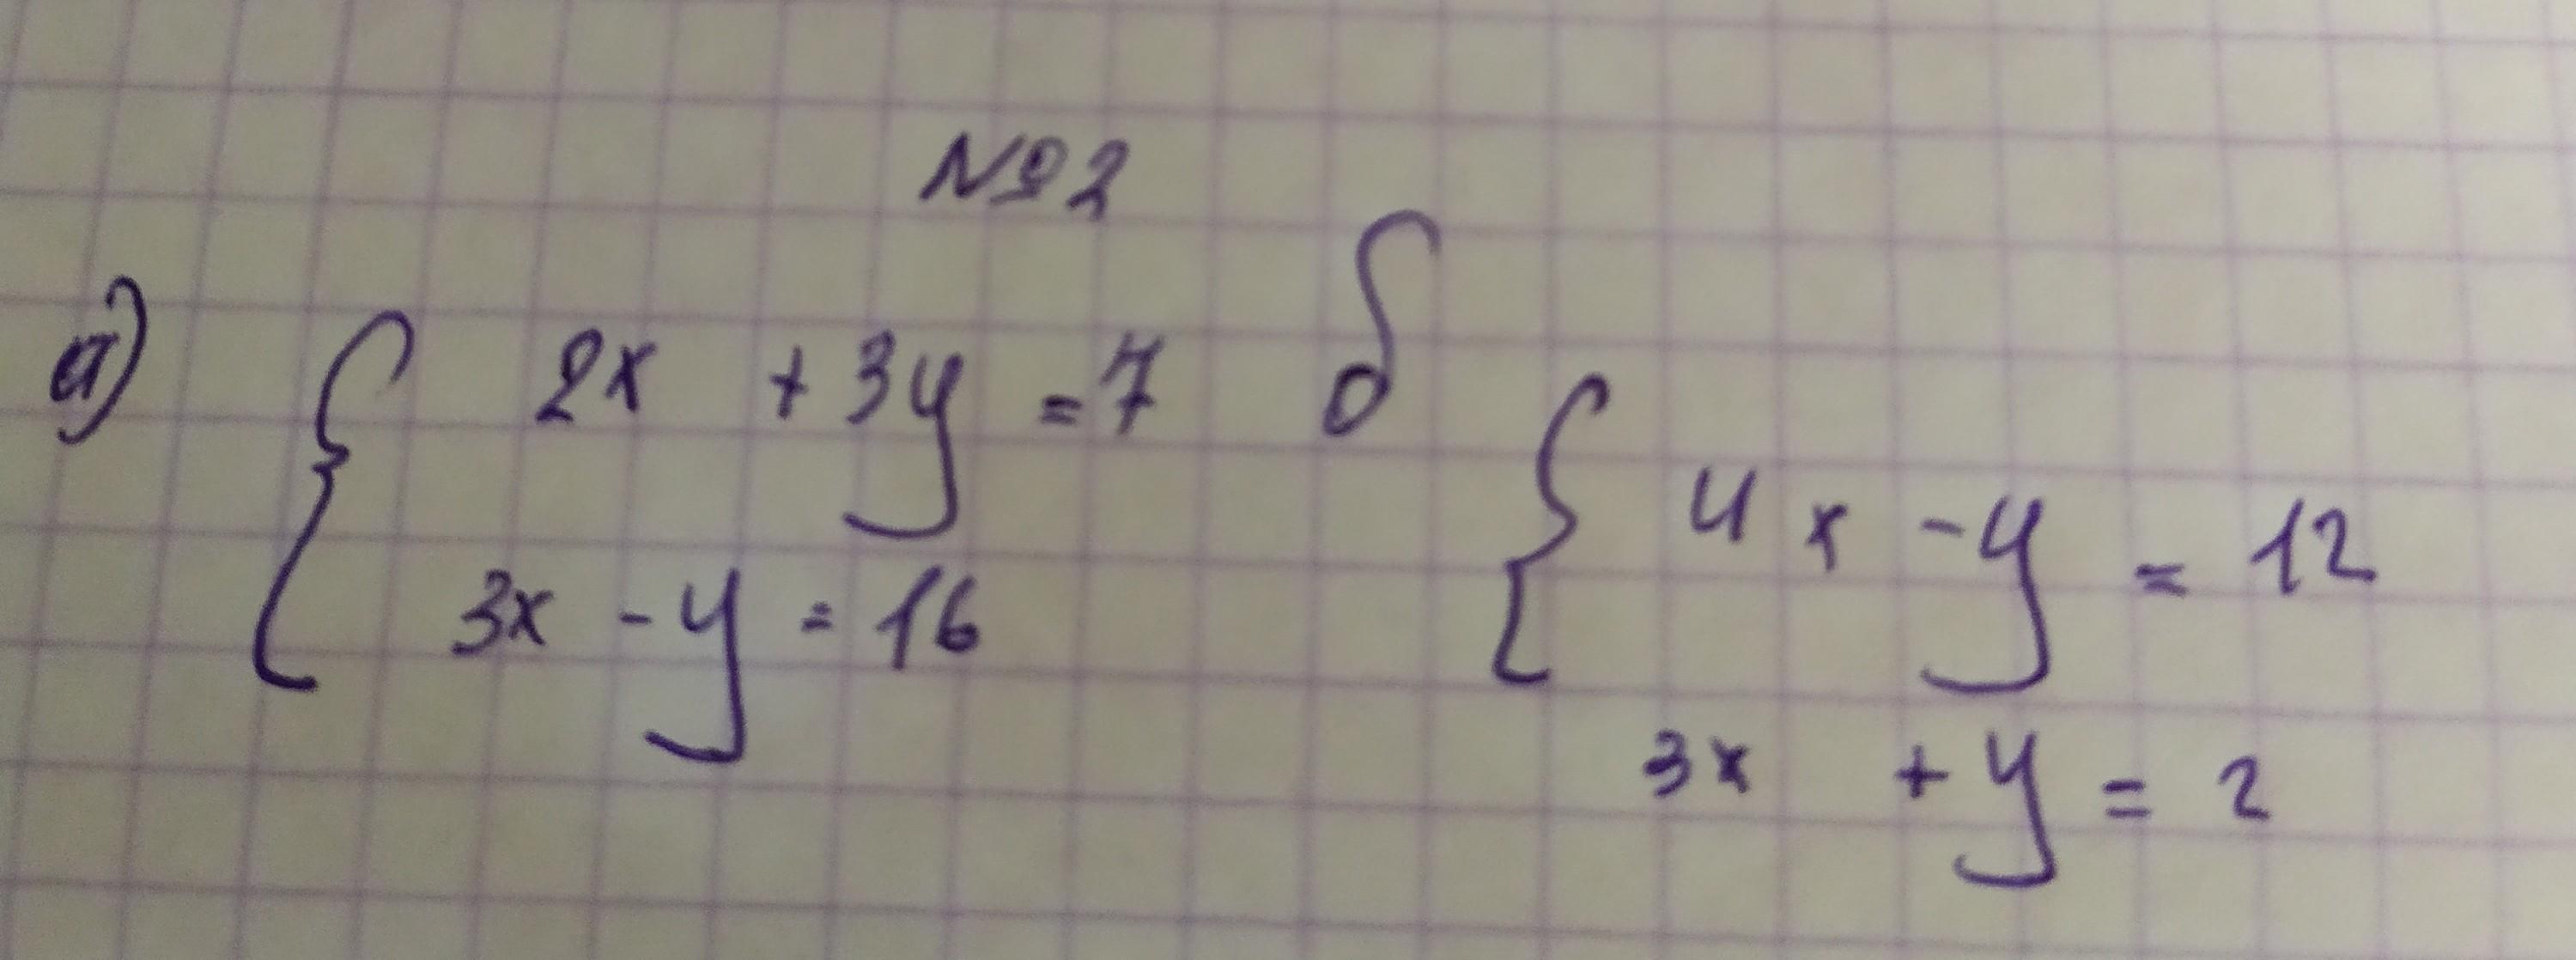 №2
а) { 2x + 3y = 7
3x - y = 16
б { 4x - y = 12
3x + y = 2